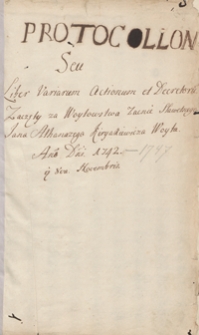 PROTOCOLLON
Seu
Liber Variarum Actionum et Decretoru
Zaczęty za Woytowstwa Zacnie Sławetnego
Jana Athanazego Woyta
Anō Dni 1742 – 1747
9 bris Novembris